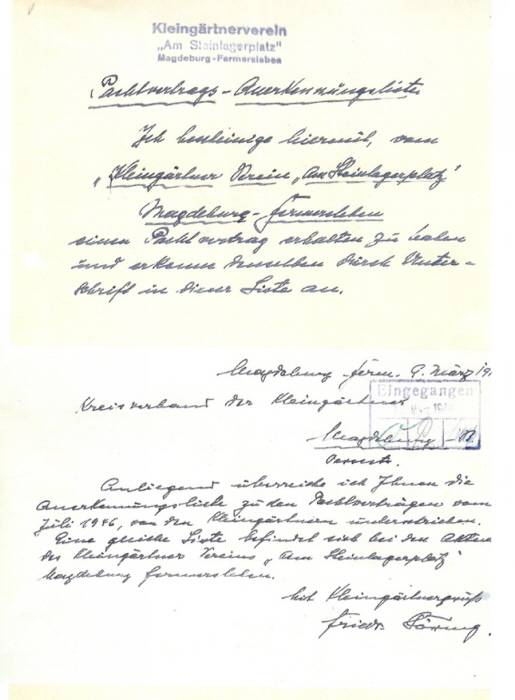 Kleingärtnerverein
„Am Steinlagerplatz"
Magdeburg-Fermersleben
Pachtvertrags-Anerkennungsliste
Ich bescheinige hiermit, vom
„Kleingärtner Verein „Am Steinlagerplatz"
Magdeburg-Fermersleben
einen Pachtvertrag erhalten zu haben
und erkenne denselben durch Unter-
schrift in dieser Liste an.
Magdeburg Ferm. 9. März 19
Kreisverband der Kleingärtner
Eingegangen
Magdeburg
Anliegend überreiche ich Ihnen die
Anerkennungsliste zu den Pachtverträgen vom
Juli 1946, von den Kleingärtnern unterschrieben.
Eine gleiche Liste befindet sich bei den Akten
des Kleingärtner Vereins „Am Steinlagerplatz"
Magdeburg Fermersleben.
Mit Kleingärtnergruß
Friedr.